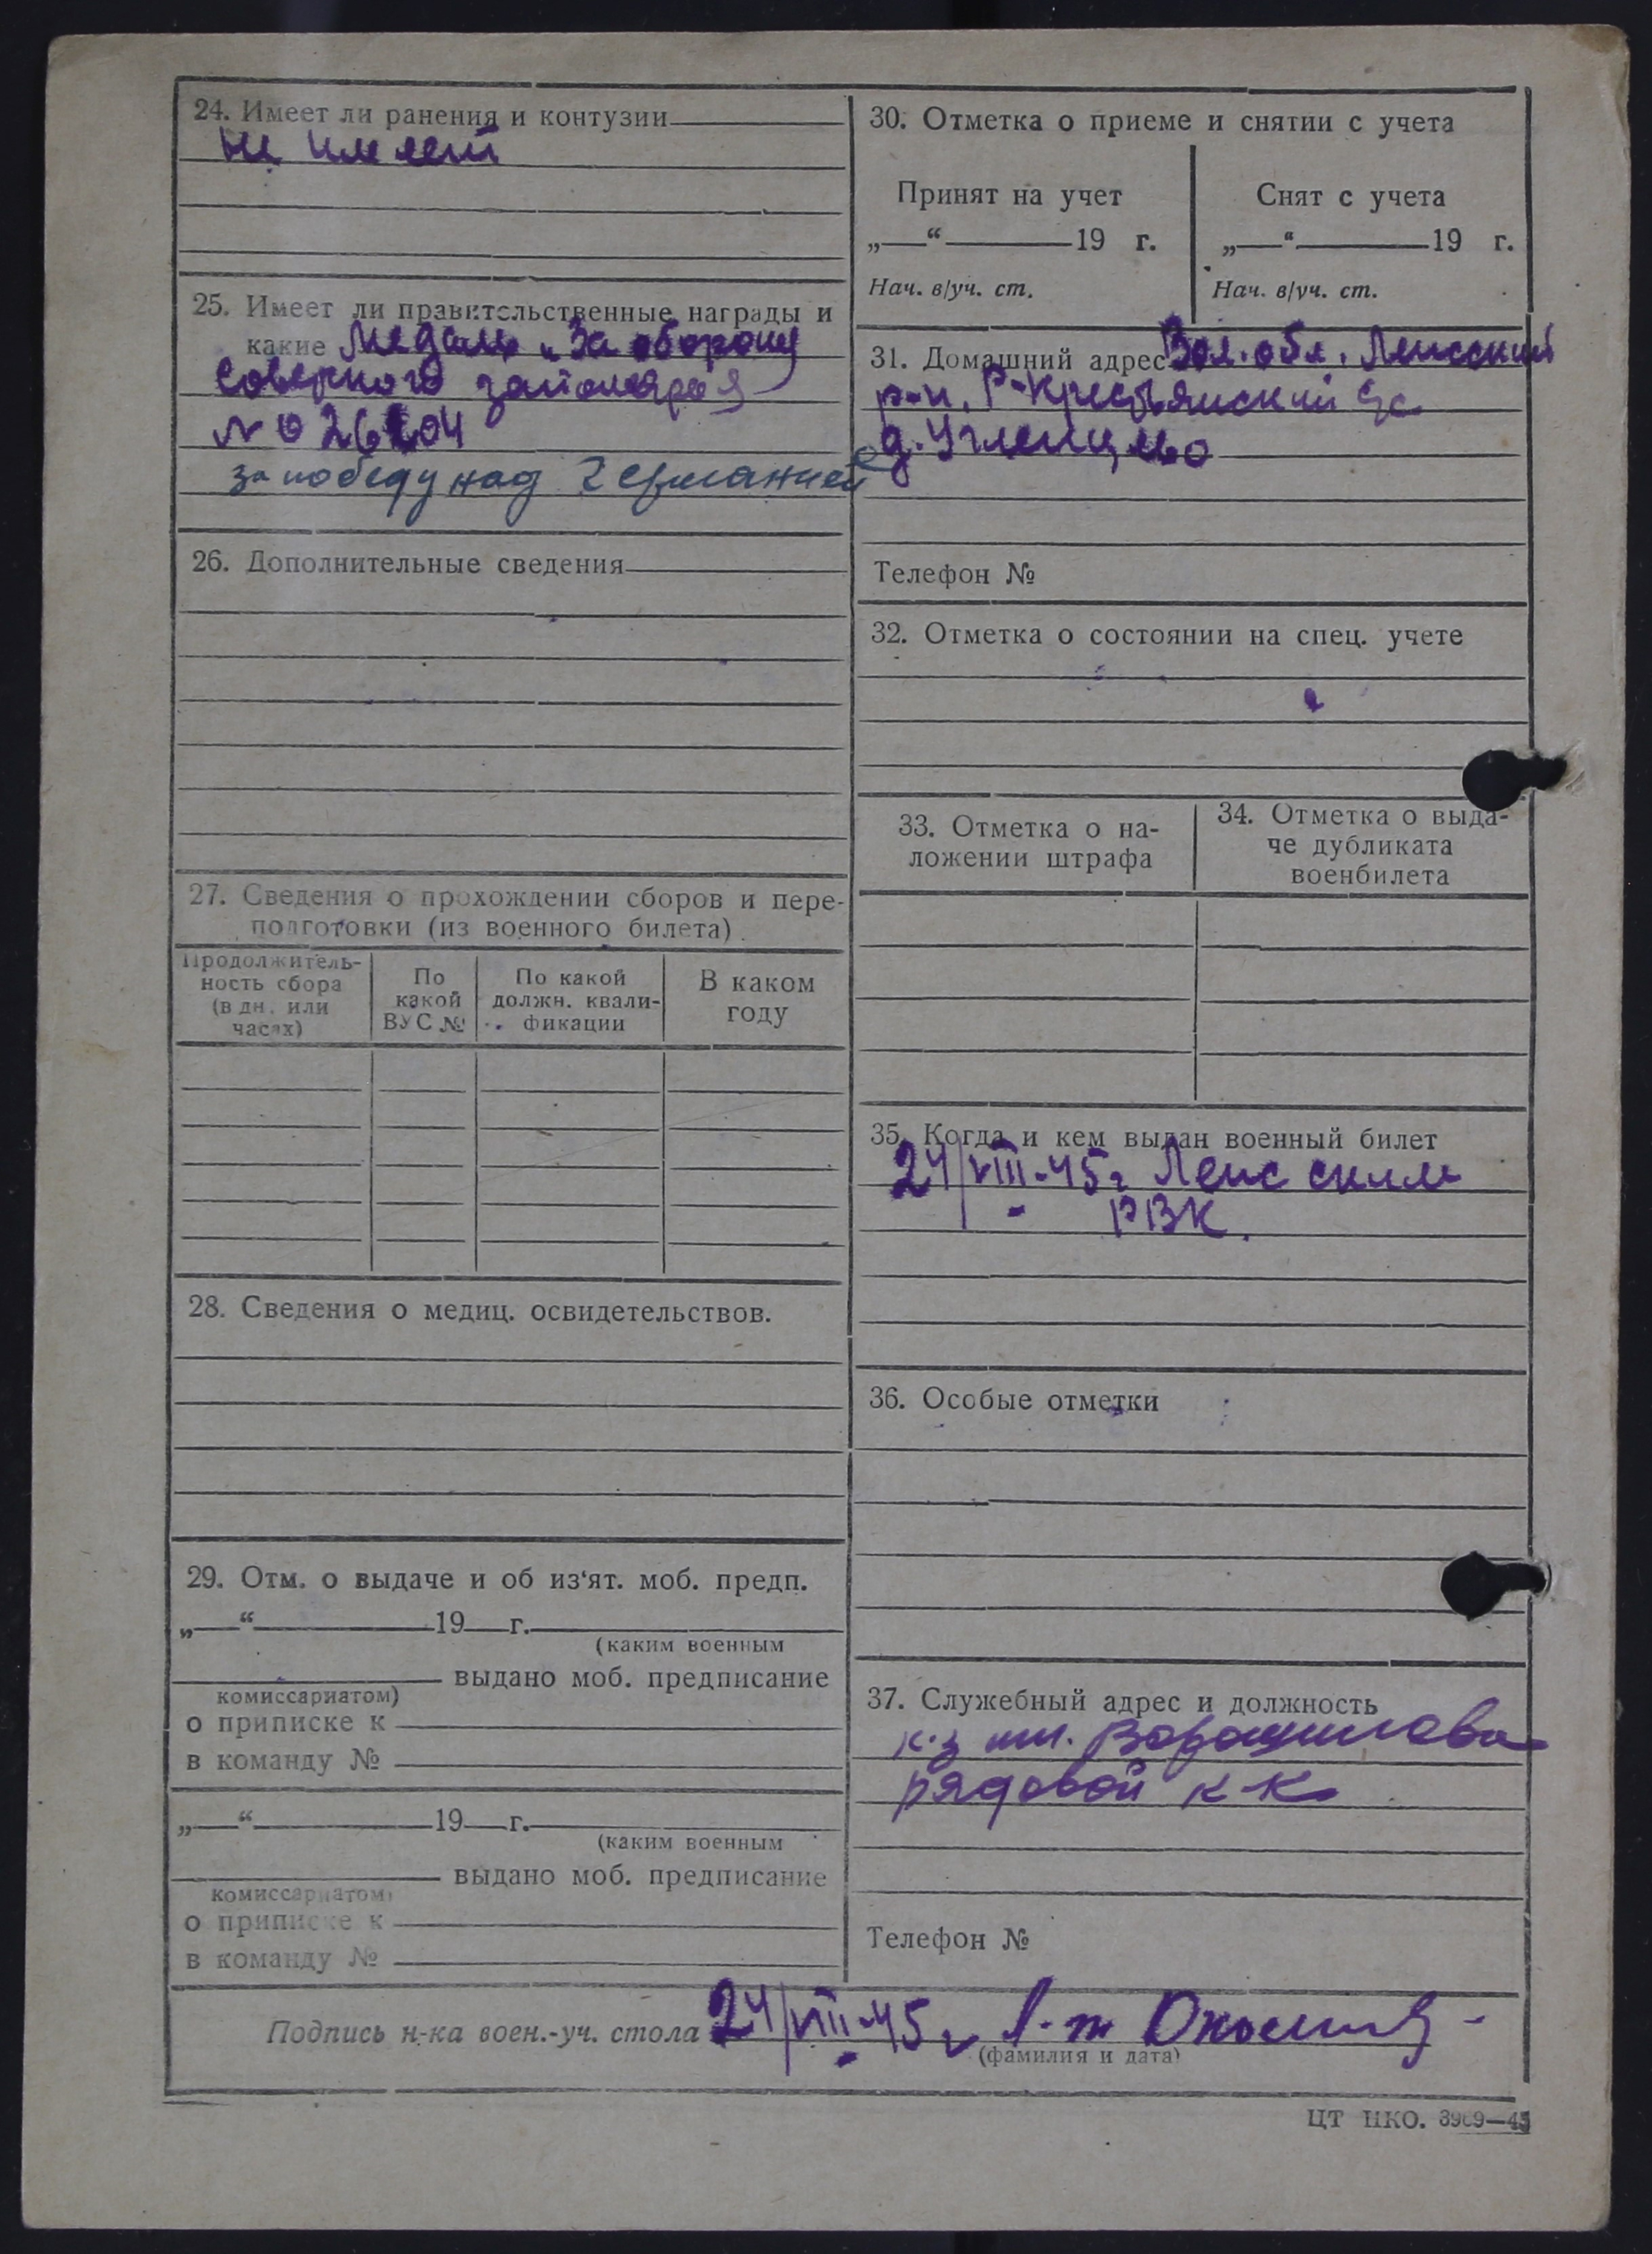 24. Имеет ли ранения и контузии
не имеет
25. Имеет ли правительственные награды и
какие Медаль „За оборону
Соверного заполярая
N 0 26604
за победу над Германией
26. Дополнительные сведения
27. Сведения о прохождении сборов и пере-
подготовки (из военного билета)
Продолжитель-
ность сбора
(в дн. или
часах)
По
какой
ВУС №
По какой
должн. квали-
фикации
В каком
году
28. Сведения о медиц. освидетельствов.
29. Отм. о выдаче и об из'ят. моб. предп.
„ “ 19 г.
(каким военным
выдано моб. предписание
комиссариатом)
о приписке к
в команду №
„ “ 19 г.
(каким военным
выдано моб. предписание
комиссариатом)
о приписке к
в команду №
30. Отметка о приеме и снятии с учета
Принят на учет
„ “ 19 г.
Нач. в/уч. ст.
Снят с учета
„ “ 19 г.
Нач. в/уч. ст.
31. Домашний адрес Вол. обл. Лежский
р-н, Р-Крестьянский с/с
д. Угленцево
Телефон №
32. Отметка о состоянии на спец. учете
33. Отметка о на-
ложении штрафа
34. Отметка о выда-
че дубликата
военбилета
35. Когда и кем выдан военный билет
24/VIII-45г Лежским
РВК.
36. Особые отметки
37. Служебный адрес и должность
к-з им. Ворошилова
рядовой к-к
Телефон №
Подпись н-ка воен.-уч. стола 24/VIII-45 г л-т
(фамилия и дата)
ЦТ НКО. 3969—45